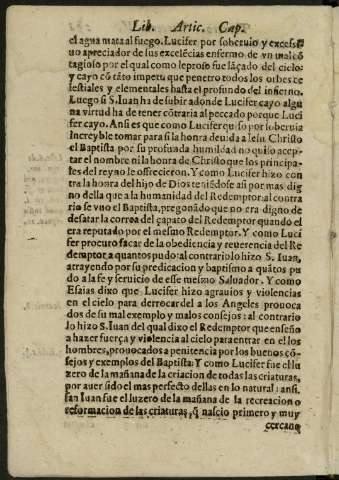 Lib. Artic. Cap.
el agua mata al fuego. Lucifer por soberuio y excess
uo apreciador de sus excelẽcias enfermo de vn mal cõ
tagioso por el qual como leproso fue lãçado del cielo:
y cayo cõ tãto impetu que penetro todos los orbes ce
lestiales y elementales hasta el profundo del infierno.
Luego si S. Iuan ha de subir adonde Lucifer cayo algu
na virtud ha de tener cõtraria al peccado porque Luci
fer cayo. Ansi es que como Lucifer quiso por soberuia
increyble tomar para si la honra deuida a Iesu Christo
el Baptista por su profunda humildad no quiso acep
tar el nombre ni la honra de Christo que los principa-
tes del reyno le offrecieron. Y como Lucifer hizo con
tra la honra del hijo de Dios teniẽdose asi por mas dig
no della que a la humanidad del Redemptor: al contra
rio se vuo el Baptista, pregonãdo que no era digno de
desatar la correa del çapato del Redemptor quando el
era reputado por el mesmo Redemptor. Y como Luci
fer procuro sacar de la obediencia y reuerencia del Re
demptor, a quantos pudo: al contrario lo hizo S. Iuan,
atrayendo por su predicacion y baptismo a quãtos pu
do a la fe y seruicio de esse mesmo Saluador. Y como
Esaias dixo que Lucifer hizo agrauios y violencias
en el cielo para derrocar del a los Angeles prouoca
dos de su mal exemplo y malos consejos: al contrario
lo hizo S. Iuan del qual dixo el Redemptor que enseño
a hazer fuerça y violencia al cielo para entrar en el los
hombres, prouocados a penitencia por los buenos cõ-
sejos y exemplos del Baptista: Y como Lucifer fue el lu
zero de la mañana de la criacion de todas las criaturas,
por auer sido el mas perfecto dellas en lo natural: ansi
san Iuan fue el luzero de la mañana de la recreacion o
reformacion de las criaturas, q̃ nascio primero y muy
cercano